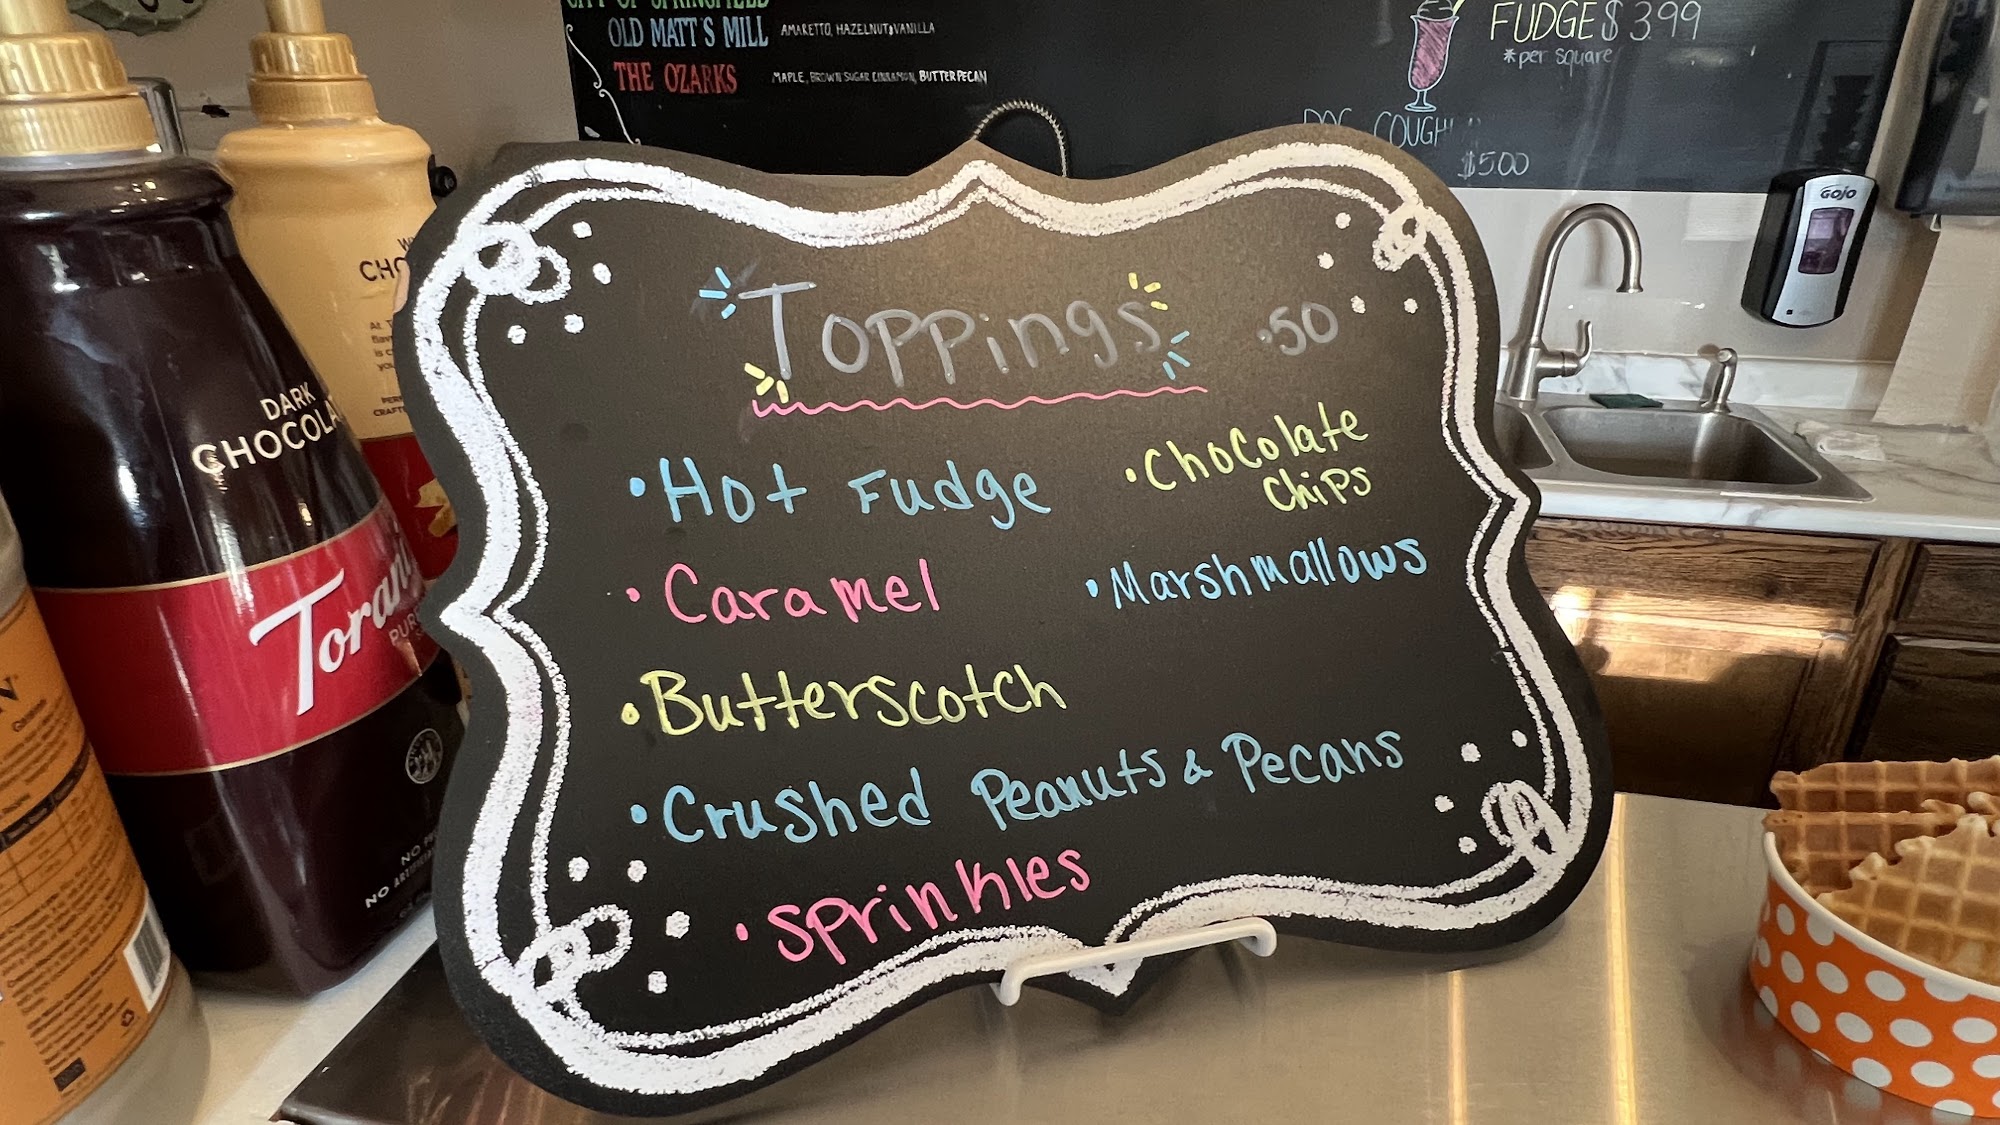 CITY OF SPRINGFIELD
OLD MATT'S MILL AMARETTO, HAZELNUT & VANILLA
THE OZARKS MAPLE, BROWN SUGAR CINNAMON, BUTTER PECAN
FUDGE $3.99
*per square
$5.00
GOJO
Toppings .50
• Hot Fudge
• Chocolate
Chips
• Caramel
• Marshmallows
• Butterscotch
• Crushed Peanuts & Pecans
• Sprinkles
DARK
CHOCOLA
Torani
PUR
NO
NO ARTIFICIAL